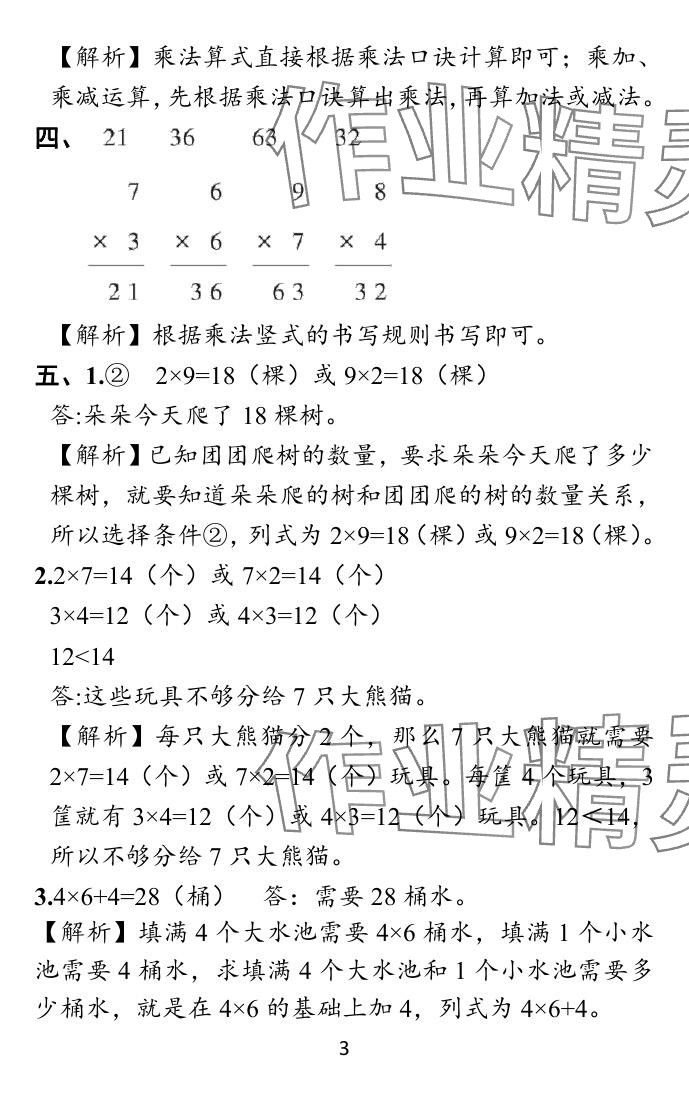 【解析】乘法算式直接根据乘法口诀计算即可；乘加、
乘减运算，先根据乘法口诀算出乘法，再算加法或减法。
四、 21 36 63 32
7 6 9 8
× 3 × 6 × 7 × 4
21 36 63 32
【解析】根据乘法竖式的书写规则书写即可。
五、1.② 2×9=18（棵）或 9×2=18（棵）
答:朵朵今天爬了 18 棵树。
【解析】已知团团爬树的数量，要求朵朵今天爬了多少
棵树，就要知道朵朵爬的树和团团爬的树的数量关系，
所以选择条件②，列式为 2×9=18（棵）或 9×2=18（棵）。
2.2×7=14（个）或 7×2=14（个）
3×4=12（个）或 4×3=12（个）
12<14
答:这些玩具不够分给 7 只大熊猫。
【解析】每只大熊猫分 2 个，那么 7 只大熊猫就需要
2×7=14（个）或 7×2=14（个）玩具。每筐 4 个玩具，3
筐就有 3×4=12（个）或 4×3=12（个）玩具。12＜14，
所以不够分给 7 只大熊猫。
3.4×6+4=28（桶） 答：需要 28 桶水。
【解析】填满 4 个大水池需要 4×6 桶水，填满 1 个小水
池需要 4 桶水，求填满 4 个大水池和 1 个小水池需要多
少桶水，就是在 4×6 的基础上加 4，列式为 4×6+4。
3
作业精灵
作业精灵